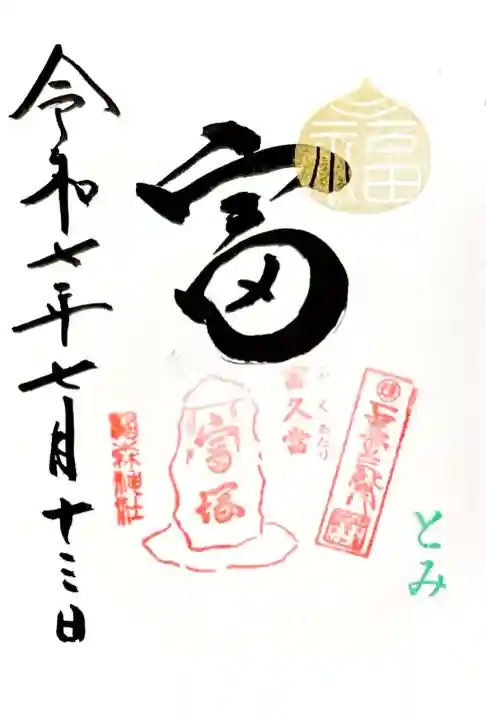 福
富
富久當
ふくあたり
富塚
椙森神社
とみ
令和七年七月十三日